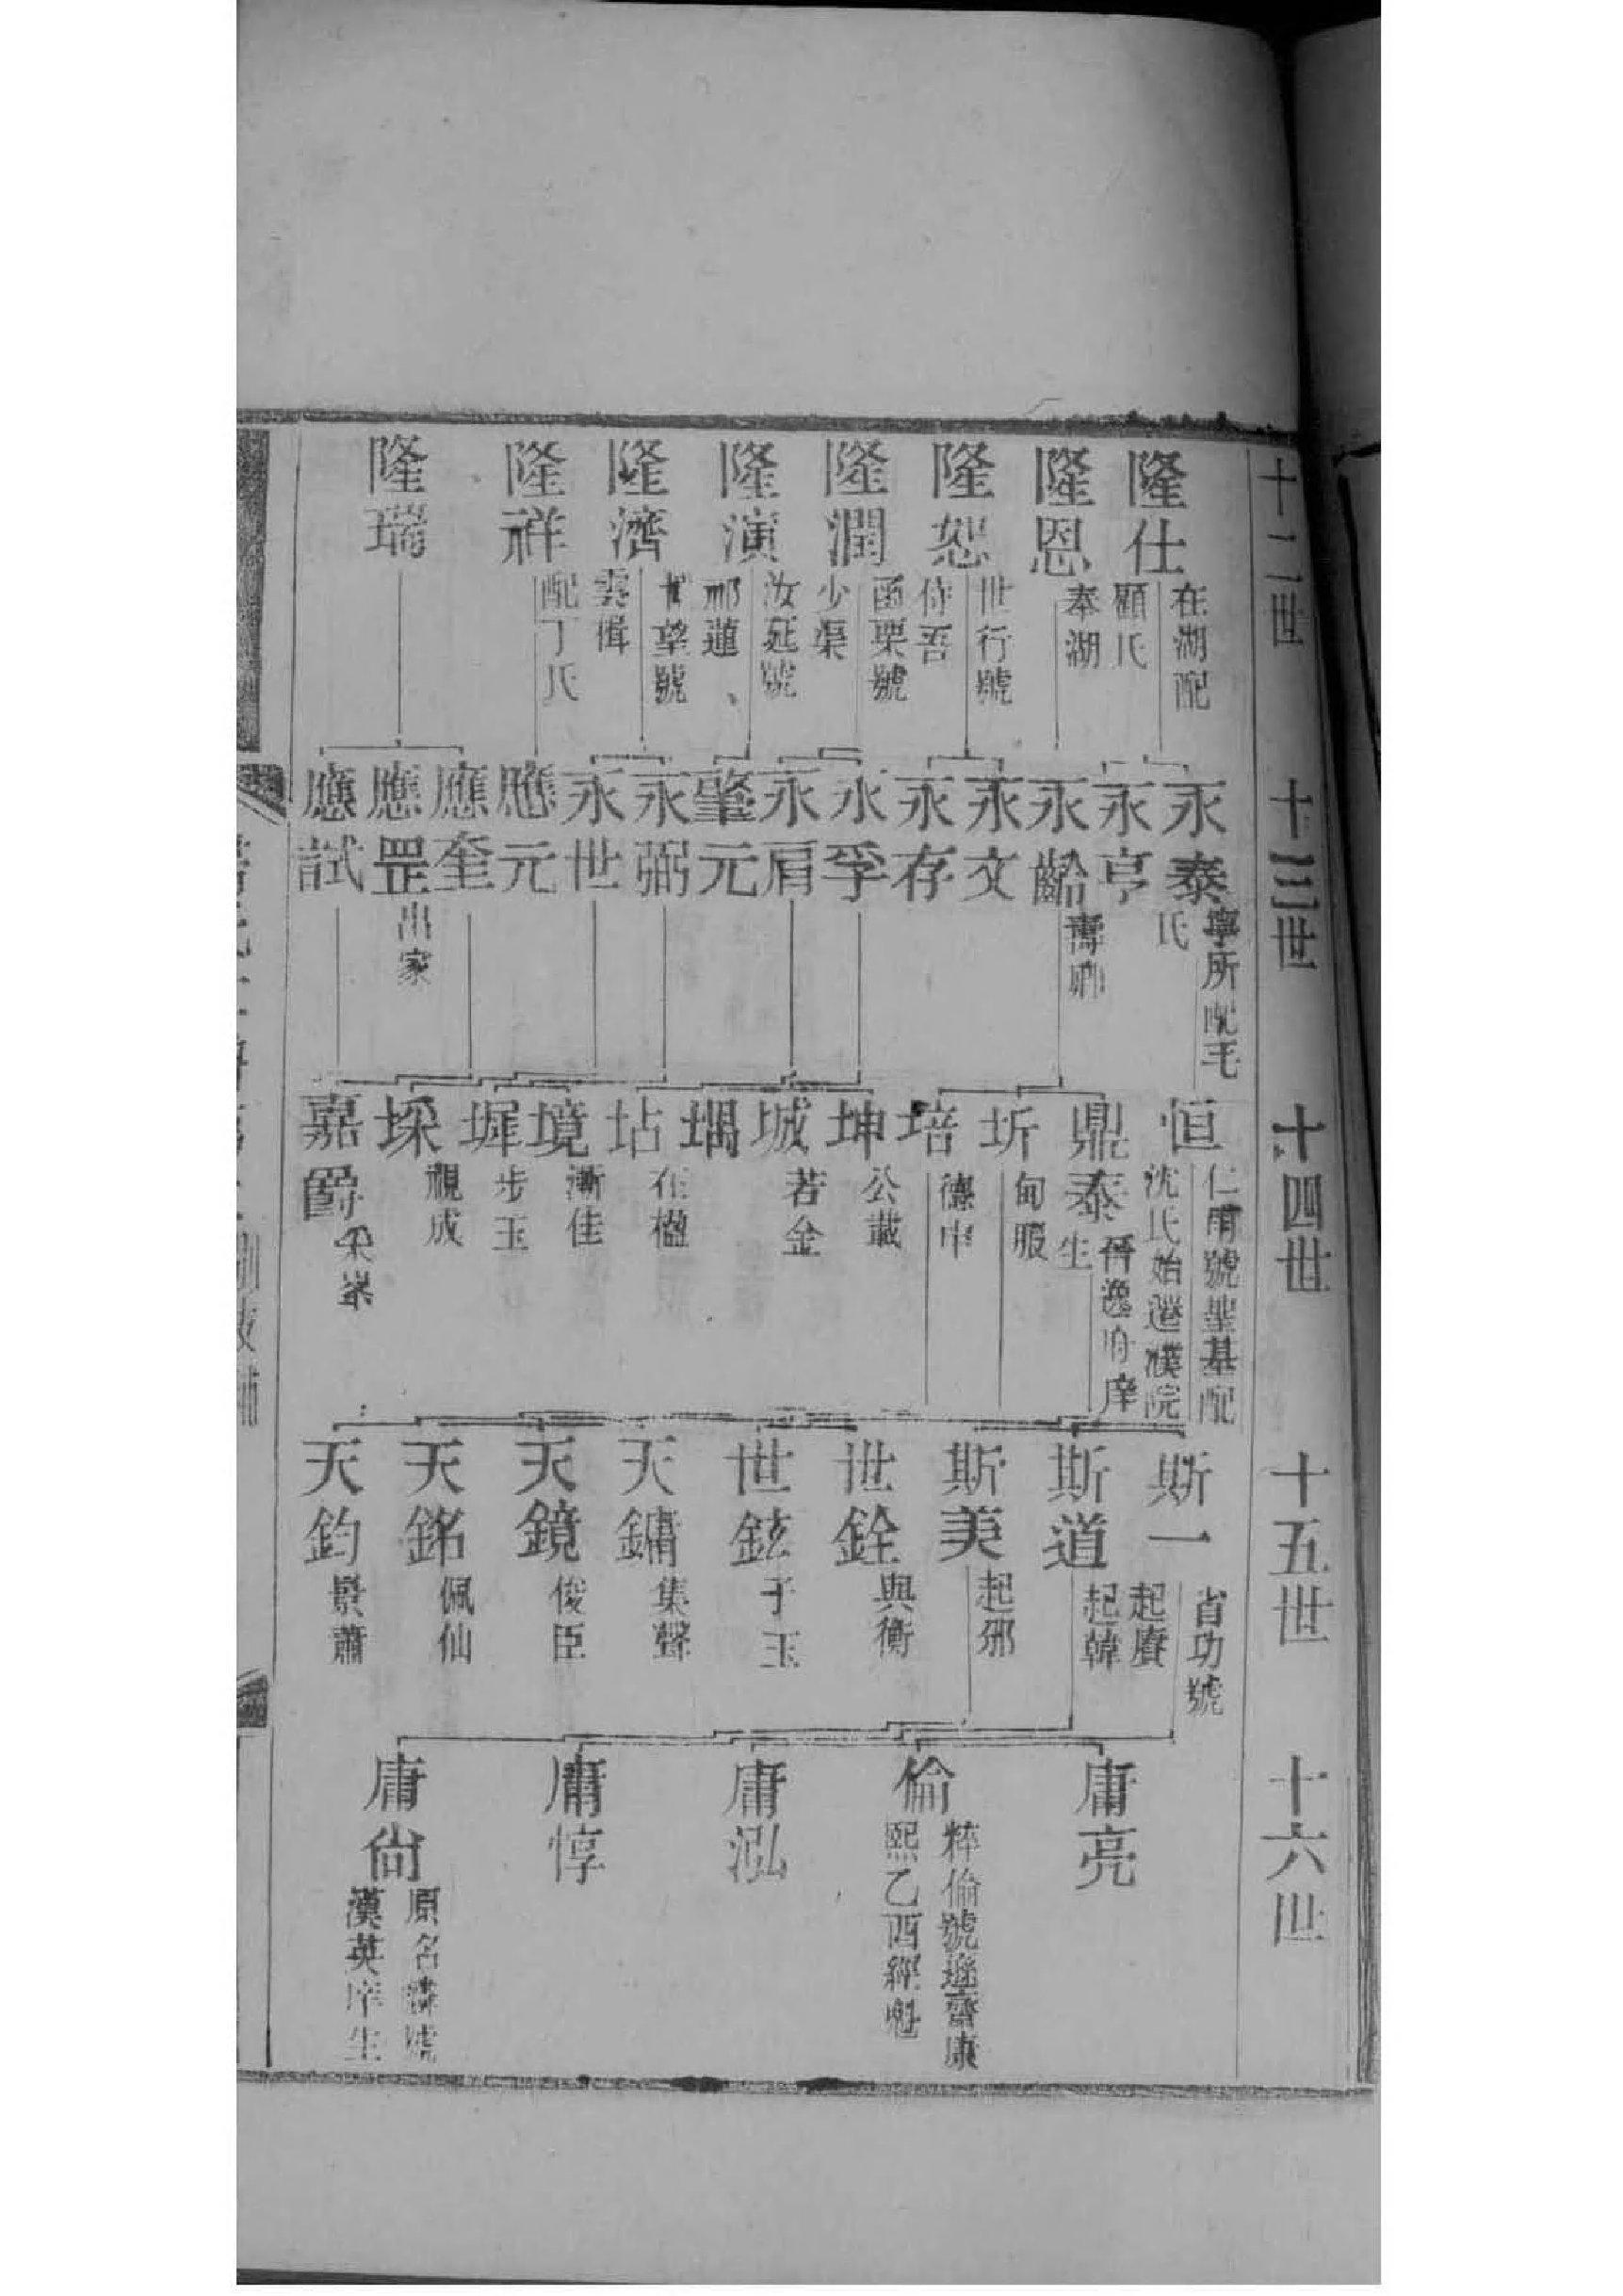 十二世
隆仕
在湖配
顧氏
隆恩
奉湖
隆恕
世行號
侍吾
隆潤
函栗號
少渠
隆演
汝延號
祁蓮
隆濟
望號
雲楫
隆祥
配丁氏
隆瑞
十三世
永泰
寧所配毛
氏
永亨
永齡
壽卿
永文
永存
永孚
永肩
肇元
永弼
永世
應元
應奎
應罡
出家
應試
十四世
恒
仁甫號聖基配
沈氏始遷濮院
鼎泰
晉逸府庠
生
圻
甸服
培
德申
坤
公載
城
若金
堣
坫
在楹
境
漸佳
墀
步玉
埰
視成
嘉爵
十五世
斯一
省功號
起賡
斯道
起韓
斯美
起邠
世銓
與衡
世鉉
于玉
天鏞
集聲
天鏡
俊臣
天銘
佩仙
天鈞
景蕭
十六世
庸亮
倫
粹倫號遜齋康
熙乙酉經魁
庸泓
庸惇
庸尙
原名號
漢英庠生